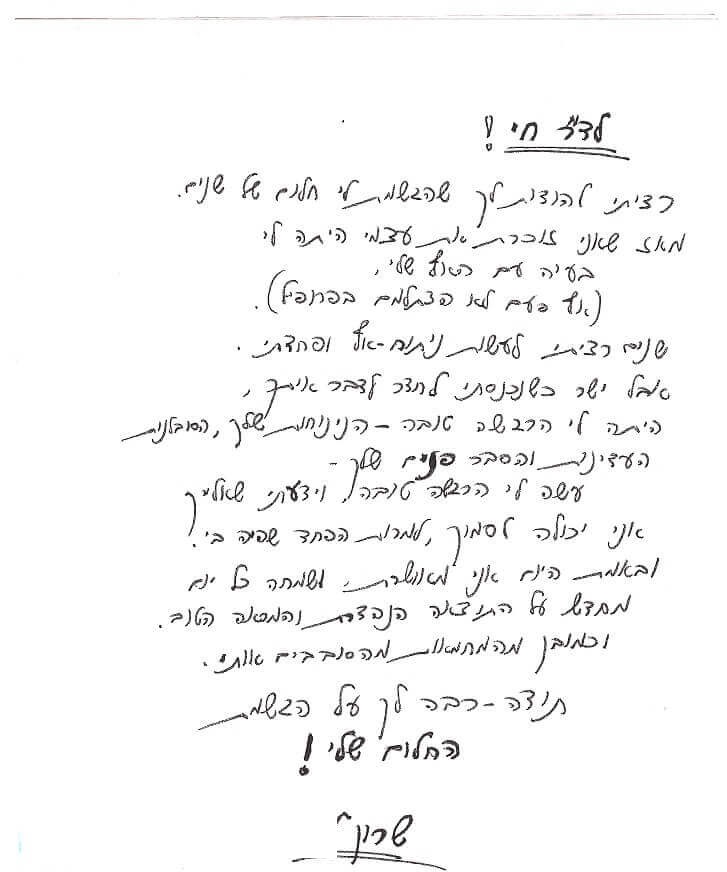 לד"ר חי !
רציתי להודות לך שהגשמת לי חלום של שנים.
מאז שאני זוכרת את עצמי היתה לי
בעיה עם האף שלי,
(אף פעם לא הצטלמתי בפרופיל).
שנים רציתי לעשות ניתוח-אף ופחדתי.
אבל ישר כשנכנסתי לחדר לדבר איתך,
היתה לי הרגשה טובה - הנינוחות שלך, הסובלנות
העדינות והסבר פנים שלך -
עשה לי הרגשה טובה, וידעתי שאליך
אני יכולה לסמוך, למרות הפחד שהיה בי.
ובאמת היום אני מאושרת, ושמחה כל יום
מחדש על התוצאה הנהדרת והמראה הטוב.
וכמובן מהמחמאות מהסובבים אותי.
תודה-רבה לך על הגשמת
החלום שלי !
שרון